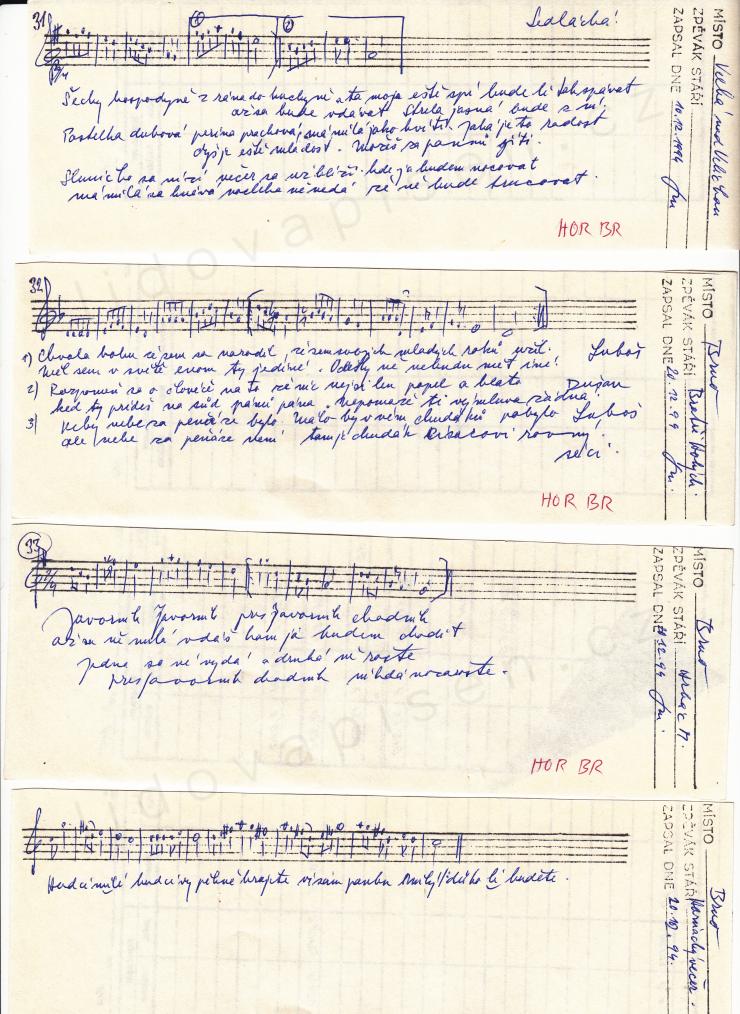 31
Sedlácká!
Šechy hospodyně z rána do kuchyně a ta moja eště spí bude li tak spávat
až sa bude vdávat Strela jasná bude s ní.
Postelka dubová peřina prachová má milá jako kvítí. Jaká je to radost
dyž je eště mladost. Možeš za pannú jíti.
Slunéčko sa níží večer sa už blíží. kde já budem nocovat
má milá sa hněvá nocleha ně nedá že ně bude trucovat.
HOR BR
MÍSTO Velká nad Veličkou
ZPĚVÁK STÁŘÍ
ZAPSAL DNE 10.12.1994
32
1) Chvála bohu že sem sa narodil, že sem svojich mladých roků užil.
Měl sem v světě enom ty jediné. Odešly ně nebudu mět iné!
Luboš
2) Rozpomeň sa o člověče na to že nic nejsi len popel a blato
ked ty prídeš na súd pánú pána. nepomaže ti výmluva žádná!
Dušan
3) Keby nebe za peňáze bylo. Málo by v něm chudáků pobylo
ale nebe za peňáze není tam je chudák Rísařovi rovný!
Luboš
HOR BR
MÍSTO Brno
ZPĚVÁK STÁŘÍ Bratři Holých.
ZAPSAL DNE 20.12.94
33
Javorník Javorník pres Javorník chodník
až sa ně milá vdáš kam já budem chodit
jedna sa ně vydá a druhá ně roste
pres Javorník chodník
HOR BR
MÍSTO Brno
ZPĚVÁK STÁŘÍ
ZAPSAL DNE 12.94
Hudci milí hudci vy pěkně hrajete
budete.
MÍSTO Brno
ZPĚVÁK STÁŘÍ
ZAPSAL DNE 20.12.94.
lidovapisen.cz